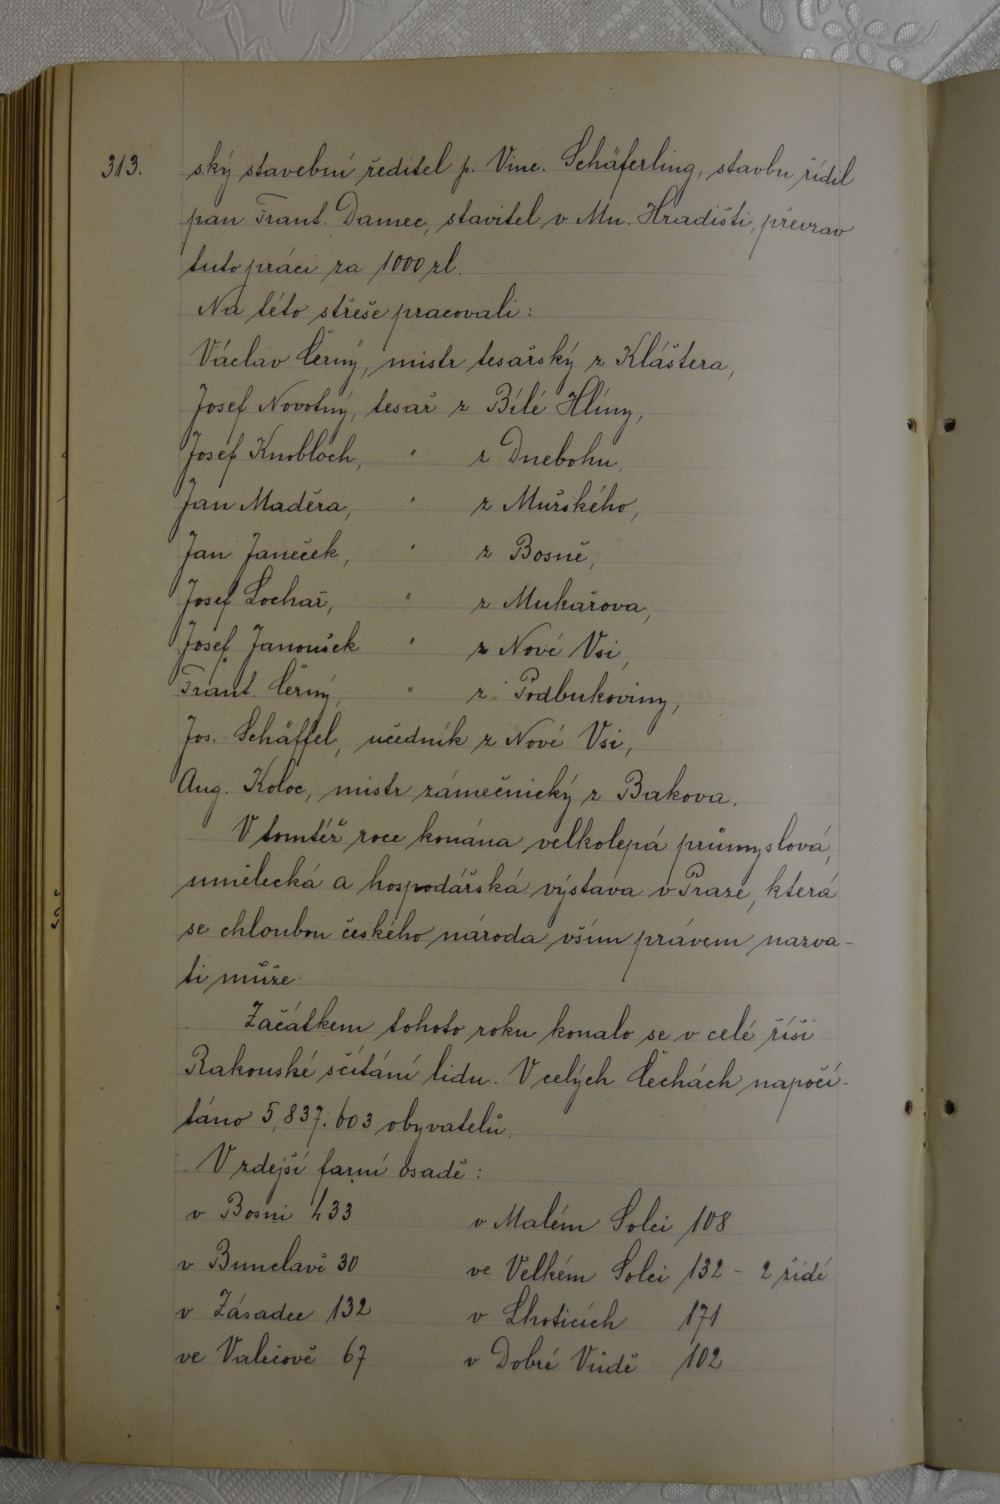 313. ský stavební ředitel p. Vinc. Schäferling, stavbu řídil
pan Frant. Damec, stavitel v Mn. Hradišti, převzav
tuto práci za 1000 zl.
Na této střeše pracovali:
Václav Černý, mistr tesařský z Kláštera,
Josef Novotný, tesař z Bílé Hlíny,
Josef Knobloch, " z Dnebohu,
Jan Maděra, " z Mužského,
Jan Janeček, " z Bosně,
Josef Lochař, " z Mukařova,
Josef Janoušek " z Nové Vsi,
Frant. Černý, " z Podbukoviny,
Jos. Schäffel, učedník z Nové Vsi,
Aug. Koloc, mistr zámečnický z Bakova.
V tomtéž roce konána velkolepá průmyslová,
umělecká a hospodářská výstava v Praze, která
se chloubou českého národa vším právem nazva-
ti může.
Začátkem tohoto roku konalo se v celé říši
Rakouské sčítání lidu. V celých Čechách napočí-
táno 5,837.603 obyvatelů.
V zdejší farní osadě:
v Bosni 433 v Malém Solci 108
v Bunclavě 30 ve Velkém Solci 132 - 2 židé
v Zásadce 132 v Lhoticích 171
ve Valečově 67 v Dobré Vůdě 102